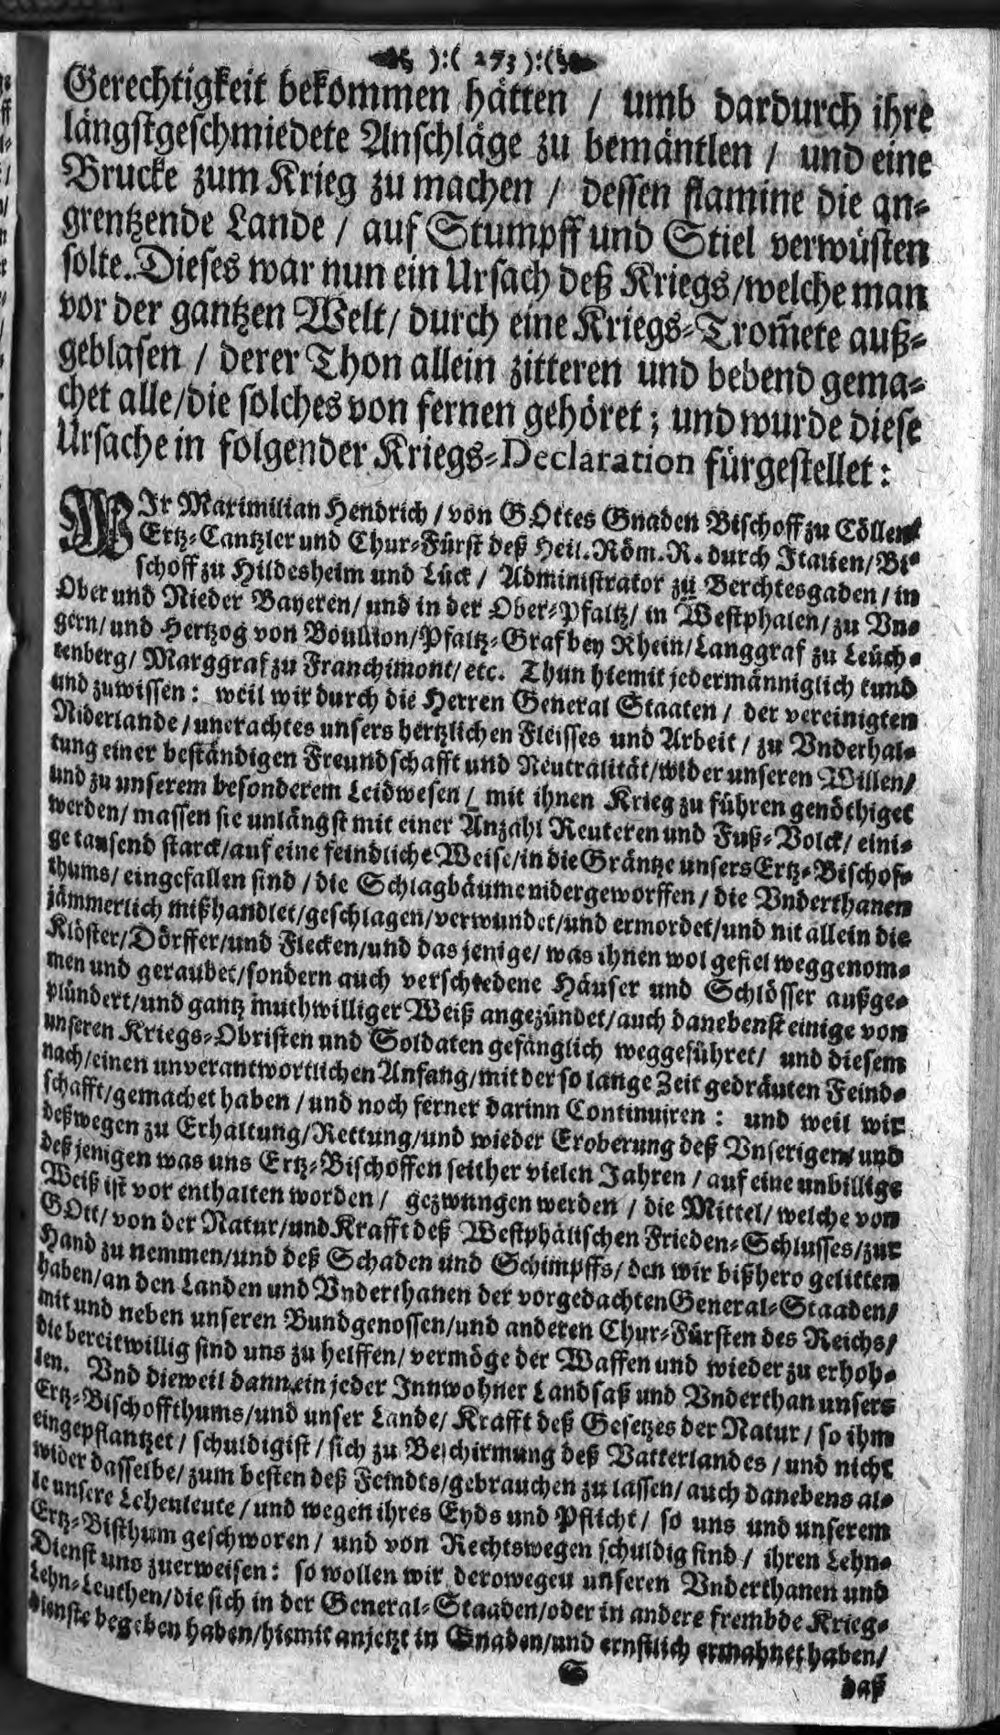 ):( 273 ):(
Gerechtigkeit bekommen hätten / umb dardurch ihre
längstgeschmiedete Anschläge zu bemäntlen / und eine
Brucke zum Krieg zu machen / dessen flamme die an⸗
grentzende Lande / auf Stumpff und Stiel verwüsten
solte. Dieses war nun ein Ursach deß Kriegs/welche man
vor der gantzen Welt/ durch eine Kriegs⸗Trom̃ete auß⸗
geblasen / derer Thon allein zitteren und bebend gema⸗
chet alle/die solches von fernen gehöret; und wurde diese
Ursache in folgender Kriegs⸗Declaration fürgestellet:
WIr Maximilian Hendrich / von GOttes Gnaden Bischoff zu Cöllen/
Ertz⸗Cantzler und Chur⸗Fürst deß Heil. Röm. R. durch Italien/Bi⸗
schoff zu Hildesheim und Lück / Administrator zu Berchtesgaden / in
Ober und Nieder Bayeren/ und in der Ober⸗Pfaltz/ in Westphalen/zu Vn⸗
gern/und Hertzog von Boullion/Pfaltz⸗Graf bey Rhein/Langgraf zu Leuch⸗
tenberg/ Marggraf zu Franchimont/ etc. Thun hiemit jedermänniglich kund
und zuwissen: weil wir durch die Herren General Staaten / der vereinigten
Niderlande/unerachtes unsers hertzlichen Fleisses und Arbeit / zu Vnderhal⸗
tung einer beständigen Freundschafft und Neutralität/wider unseren Willen/
und zu unserem besonderem Leidwesen / mit ihnen Krieg zu führen genöthiget
werden/ massen sie unlängst mit einer Anzahl Reuteren und Fuß⸗Volck/ eini⸗
ge tausend starck/auf eine feindliche Weise/in die Gräntze unsers Ertz⸗Bischof⸗
thums/ eingefallen sind / die Schlagbäume nidergeworffen / die Vnderthanen
jämmerlich mißhandlet/geschlagen/verwundet/und ermordet/und nit allein die
Klöster/Dörffer/und Flecken/und das jenige/ was ihnen wol gefiel weggenom⸗
men und geraubet/sondern auch verschiedene Häuser und Schlösser außge⸗
plündert/und gantz muthwilliger Weiß angezündet/auch danebenst einige von
unseren Kriegs⸗Obristen und Soldaten gefänglich weggeführet/ und diesem
nach/einen unverantwortlichen Anfang/mit der so lange Zeit gedräuten Feind⸗
schafft/gemachet haben / und noch ferner darinn Continuiren: und weil wir
deßwegen zu Erhaltung/Rettung/und wieder Eroberung deß Vnserigen/ und
deß jenigen was uns Ertz⸗Bischoffen seither vielen Jahren / auf eine unbillige
Weiß ist vor enthalten worden / gezwungen werden / die Mittel/ welche von
GOtt/von der Natur/und Krafft deß Westphälischen Frieden⸗Schlusses/zur
Hand zu nemmen/und deß Schaden und Schimpffs/ den wir bißhero gelitten
haben/an den Landen und Vnderthanen der vorgedachten General⸗Staaden/
mit und neben unseren Bundgenossen/und anderen Chur⸗Fürsten des Reichs/
die bereitwillig sind uns zu helffen/ vermöge der Waffen und wieder zu erhoh⸗
len. Vnd dieweil dann ein jeder Innwohner Landsaß und Vnderthan unsers
Ertz⸗Bischoffthums/und unser Lande/ Krafft deß Gesetzes der Natur / so ihm
eingepflantzet / schuldig ist / sich zu Beschirmung deß Vatterlandes / und nicht
wider dasselbe/ zum besten deß Feindts/gebrauchen zu lassen/ auch danebens al⸗
le unsere Lehenleute / und wegen ihres Eyds und Pflicht / so uns und unserem
Ertz⸗Bisthum geschworen / und von Rechtswegen schuldig sind / ihren Lehn⸗
Dienst uns zuerweisen: so wollen wir derowegen unseren Vnderthanen und
Lehn⸗Leuthen/die sich in der General⸗Staaden/oder in andere frembde Krieg⸗
dienste begeben haben/hiemit anjetzt in Gnaden/und ernstlich ermahnet haben/
S
daß